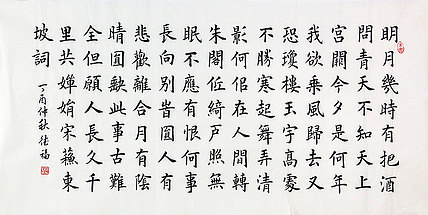 明月幾時有把酒
問青天不知天上
宮闕今夕是何年
我欲乘風歸去又
恐瓊樓玉宇高處
不勝寒起舞弄清
影何佀在人間轉
朱閣低綺戶照無
眠不應有恨何事
長向別旹圓人有
悲歡離合月有陰
晴圓缺此事古難
全但願人長久千
里共嬋娟宋蘇東
坡詞
丁酉仲秋福